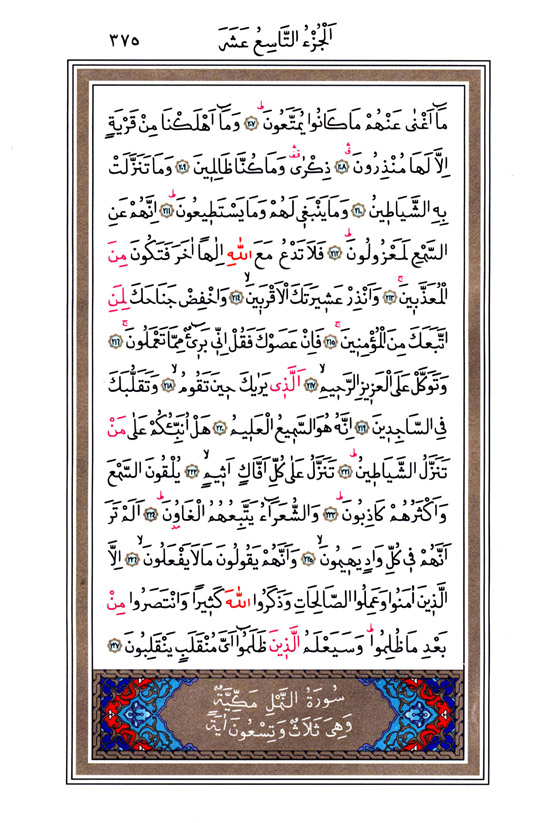 اَلْجُزْءُ التَّاسِعُ عَشَرَ ٣٧٥
مَٓا اَغْنٰى عَنْهُمْ مَا كَانُوا يُمَتَّعُونَ ﴿٢٠٧﴾ وَمَٓا اَهْلَكْنَا مِنْ قَرْيَةٍ
اِلَّا لَهَا مُنْذِرُونَ ﴿٢٠٨﴾ ذِكْرٰى وَمَا كُنَّا ظَالِمٖينَ ﴿٢٠٩﴾ وَمَا تَنَزَّلَتْ
بِهِ الشَّيَاطٖينُ ﴿٢١٠﴾ وَمَا يَنْبَغٖى لَهُمْ وَمَا يَسْتَطٖيعُونَ ﴿٢١١﴾ اِنَّهُمْ عَنِ
السَّمْعِ لَمَعْزُولُونَ ﴿٢١٢﴾ فَلَا تَدْعُ مَعَ اللّٰهِ اِلٰهًا اٰخَرَ فَتَكُونَ مِنَ
الْمُعَذَّبٖينَ ﴿٢١٣﴾ وَاَنْذِرْ عَشٖيرَتَكَ الْاَقْرَبٖينَ ﴿٢١٤﴾ وَاخْفِضْ جَنَاحَكَ لِمَنِ
اتَّبَعَكَ مِنَ الْمُؤْمِنٖينَ ﴿٢١٥﴾ فَاِنْ عَصَوْكَ فَقُلْ اِنّٖى بَرٖٓىءٌ مِمَّا تَعْمَلُونَ ﴿٢١٦﴾
وَتَوَكَّلْ عَلَى الْعَزٖيزِ الرَّحٖيمِ ﴿٢١٧﴾ اَلَّذٖى يَرٰيكَ حٖينَ تَقُومُ ﴿٢١٨﴾ وَتَقَلُّبَكَ
فِى السَّاجِدٖينَ ﴿٢١٩﴾ اِنَّهُ هُوَ السَّمٖيعُ الْعَلٖيمُ ﴿٢٢٠﴾ هَلْ اُنَبِّئُكُمْ عَلٰى مَنْ
تَنَزَّلُ الشَّيَاطٖينُ ﴿٢٢١﴾ تَنَزَّلُ عَلٰى كُلِّ اَفَّاكٍ اَثٖيمٍ ﴿٢٢٢﴾ يُلْقُونَ السَّمْعَ
وَاَكْثَرُهُمْ كَاذِبُونَ ﴿٢٢٣﴾ وَالشُّعَرَٓاءُ يَتَّبِعُهُمُ الْغَاوُنَ ﴿٢٢٤﴾ اَلَمْ تَرَ
اَنَّهُمْ فٖى كُلِّ وَادٍ يَهٖيمُونَ ﴿٢٢٥﴾ وَاَنَّهُمْ يَقُولُونَ مَا لَا يَفْعَلُونَ ﴿٢٢٦﴾ اِلَّا
الَّذٖينَ اٰمَنُوا وَعَمِلُوا الصَّالِحَاتِ وَذَكَرُوا اللّٰهَ كَثٖيرًا وَانْتَصَرُوا مِنْ
بَعْدِ مَا ظُلِمُوا وَسَيَعْلَمُ الَّذٖينَ ظَلَمُٓوا اَىَّ مُنْقَلَبٍ يَنْقَلِبُونَ ﴿٢٢٧﴾
سُورَةُ النَّمْلِ مَكِّيَّةٌ
وَهِىَ ثَلَاثٌ وَتِسْعُونَ اٰيَةً